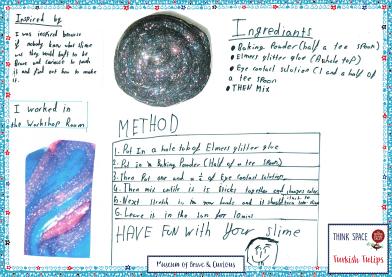 Inspired by
I was inspired because
if nobody knew what slime
was they would have to be
Brave and curious to touch
it and find out how to make
it.
I worked in
the Workshop Room
Ingrediants
Baking Powder (half a tee spoon)
Elmers glitter glue (A whole tub)
Eye contact solution (1 and a half of
a tee spoon
THEN Mix
METHOD
1. Put In a hole tub of Elmers glitter glue
2. Put in a Baking Powder (Half of a tee spoon)
3. Then Put one and a ½ of Eye contact solution
4. Then mix untile it is sticks together and changes color
5. Next stretch it in your hands and it should
6. Leave it in the sun for 10 mins
HAVE FUN with your slime
Museum of Brave & Curious
THINK SPACE
Turkish Tulips